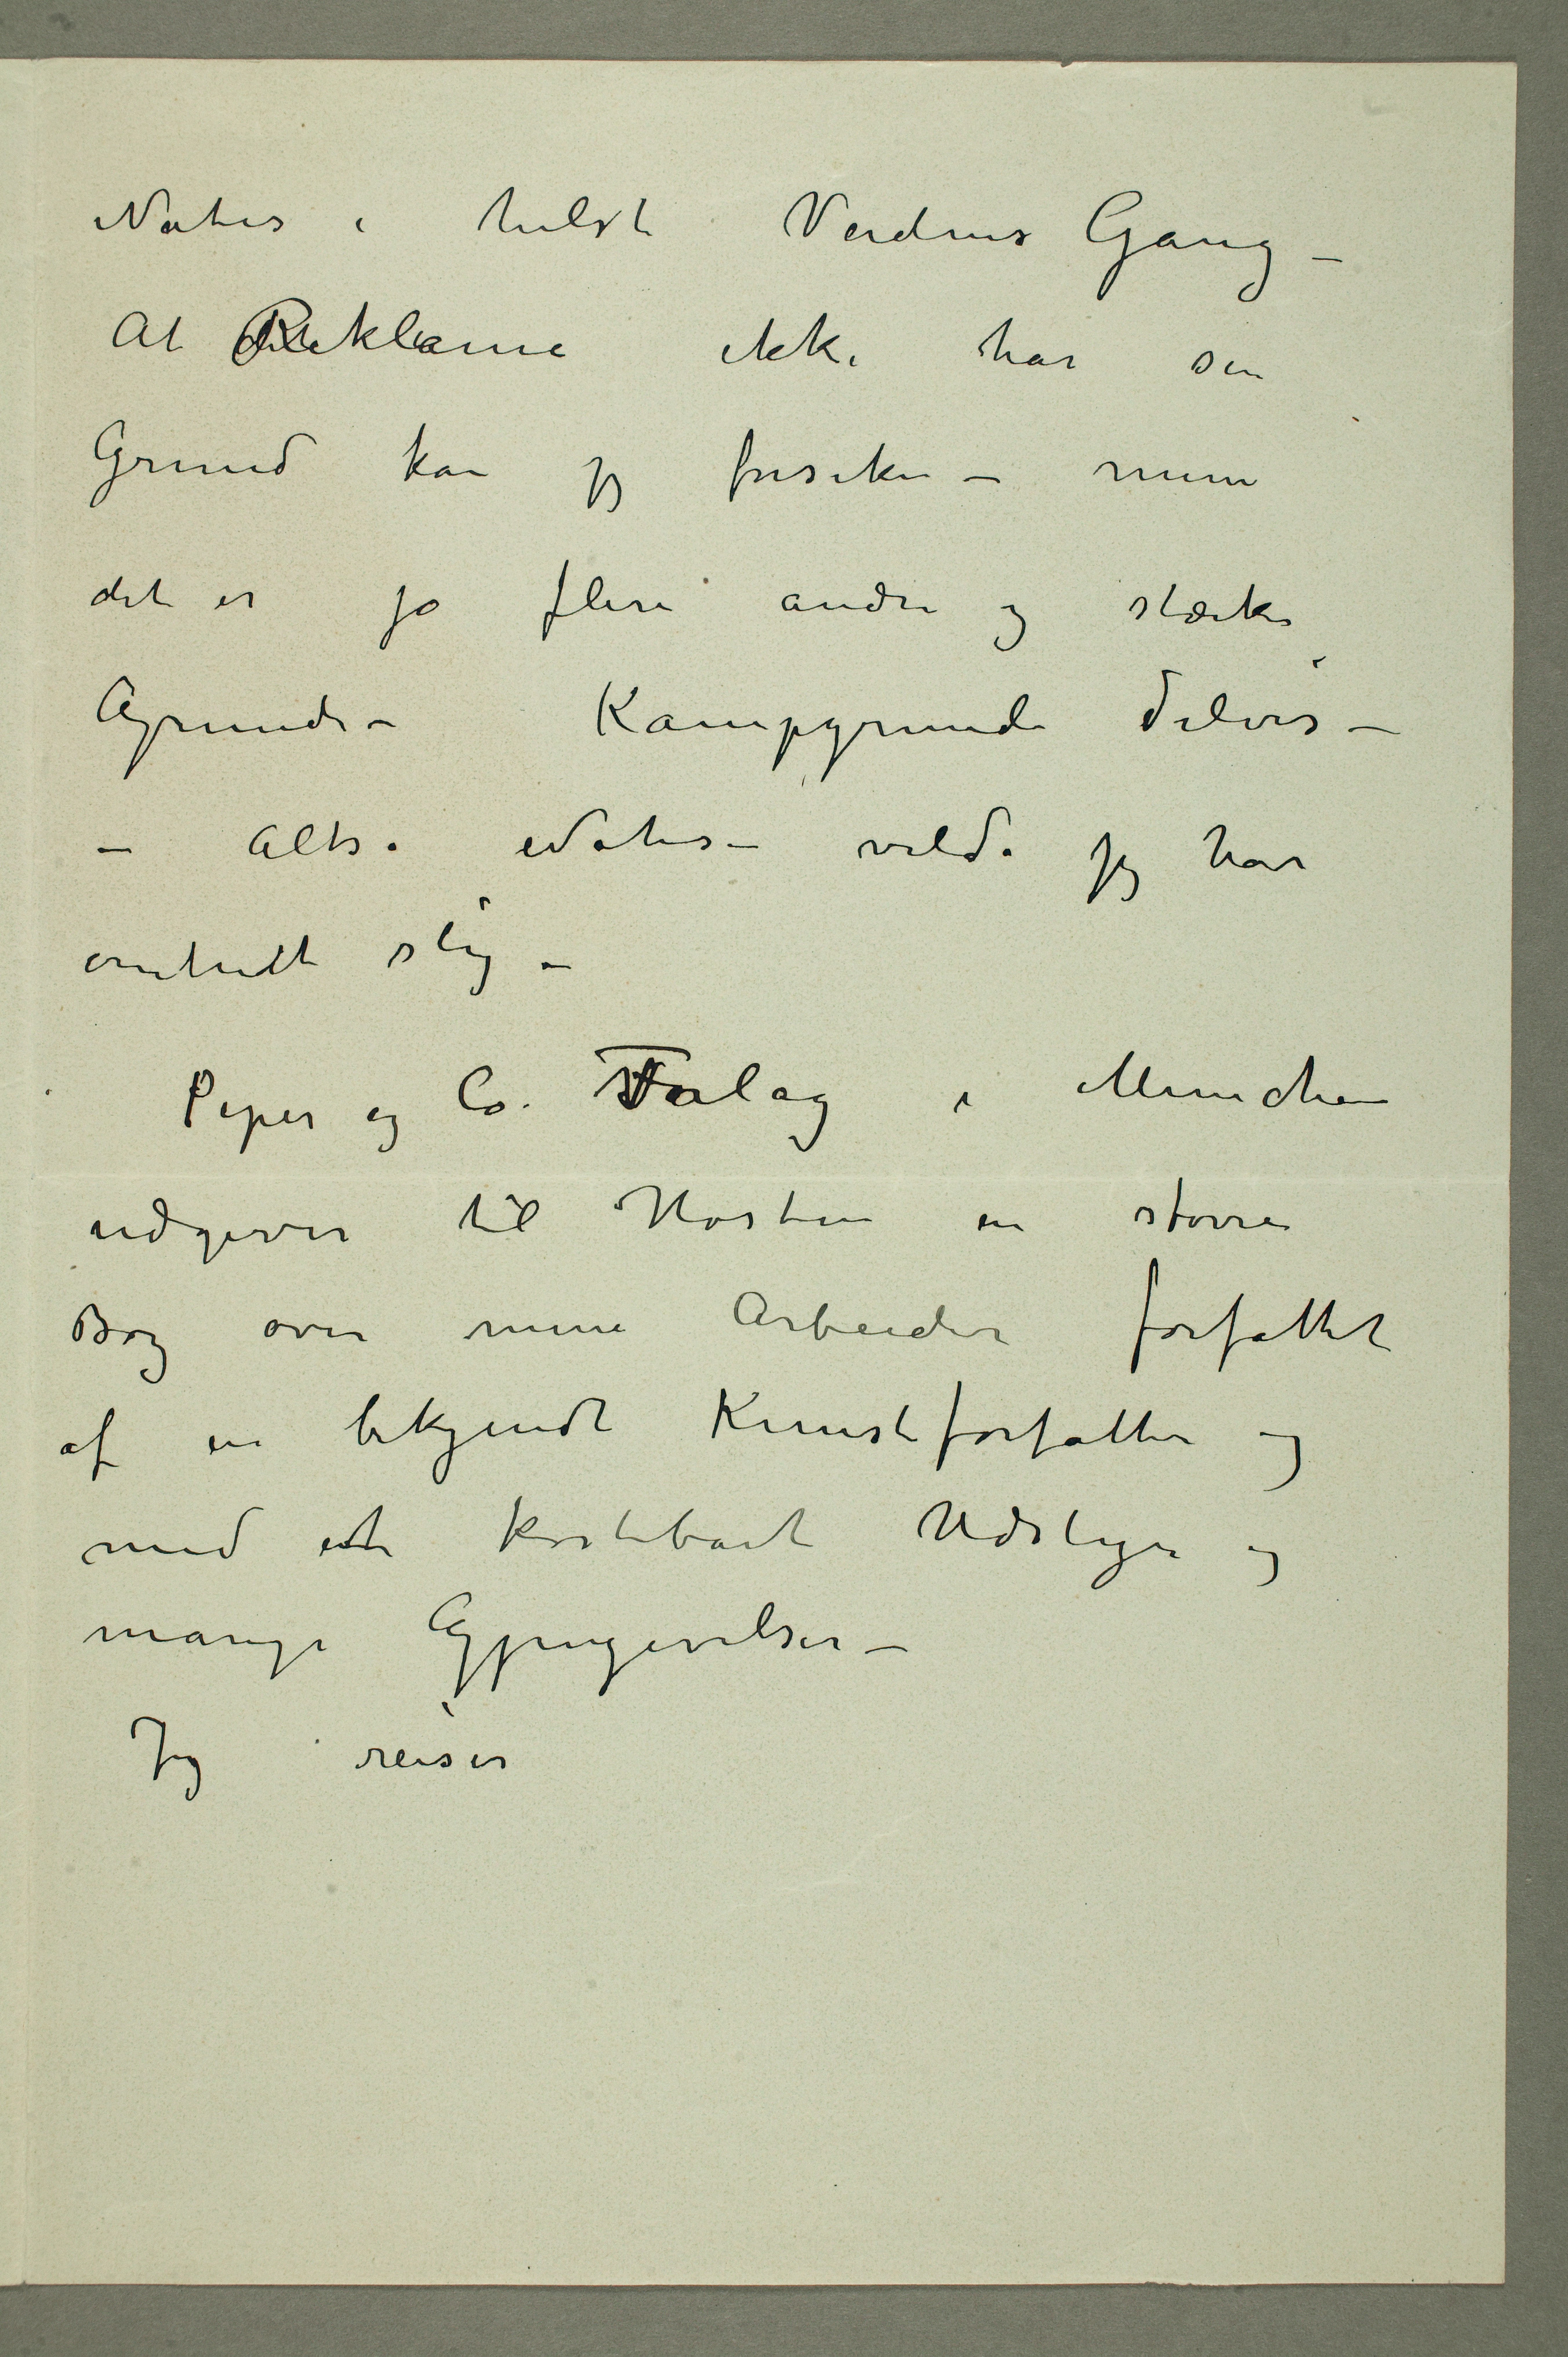 Notis i helst Verdens Gang –
At Reklame ikke har sin
Grund kan jeg forsikre – men
det er jo flere andre og stærke
Grunde – Kampgrunde delvis –
– Altså Notis – vilde jeg have
omtrent slig –
Piper og Co. Forlag i München
udgiver til Høsten en større
Bog over mine Arbeider forfattet
af en bekjendt Kunstforfatter og
med et kostbart Udstyr og
mange Gjengivelser –
Jeg reiser